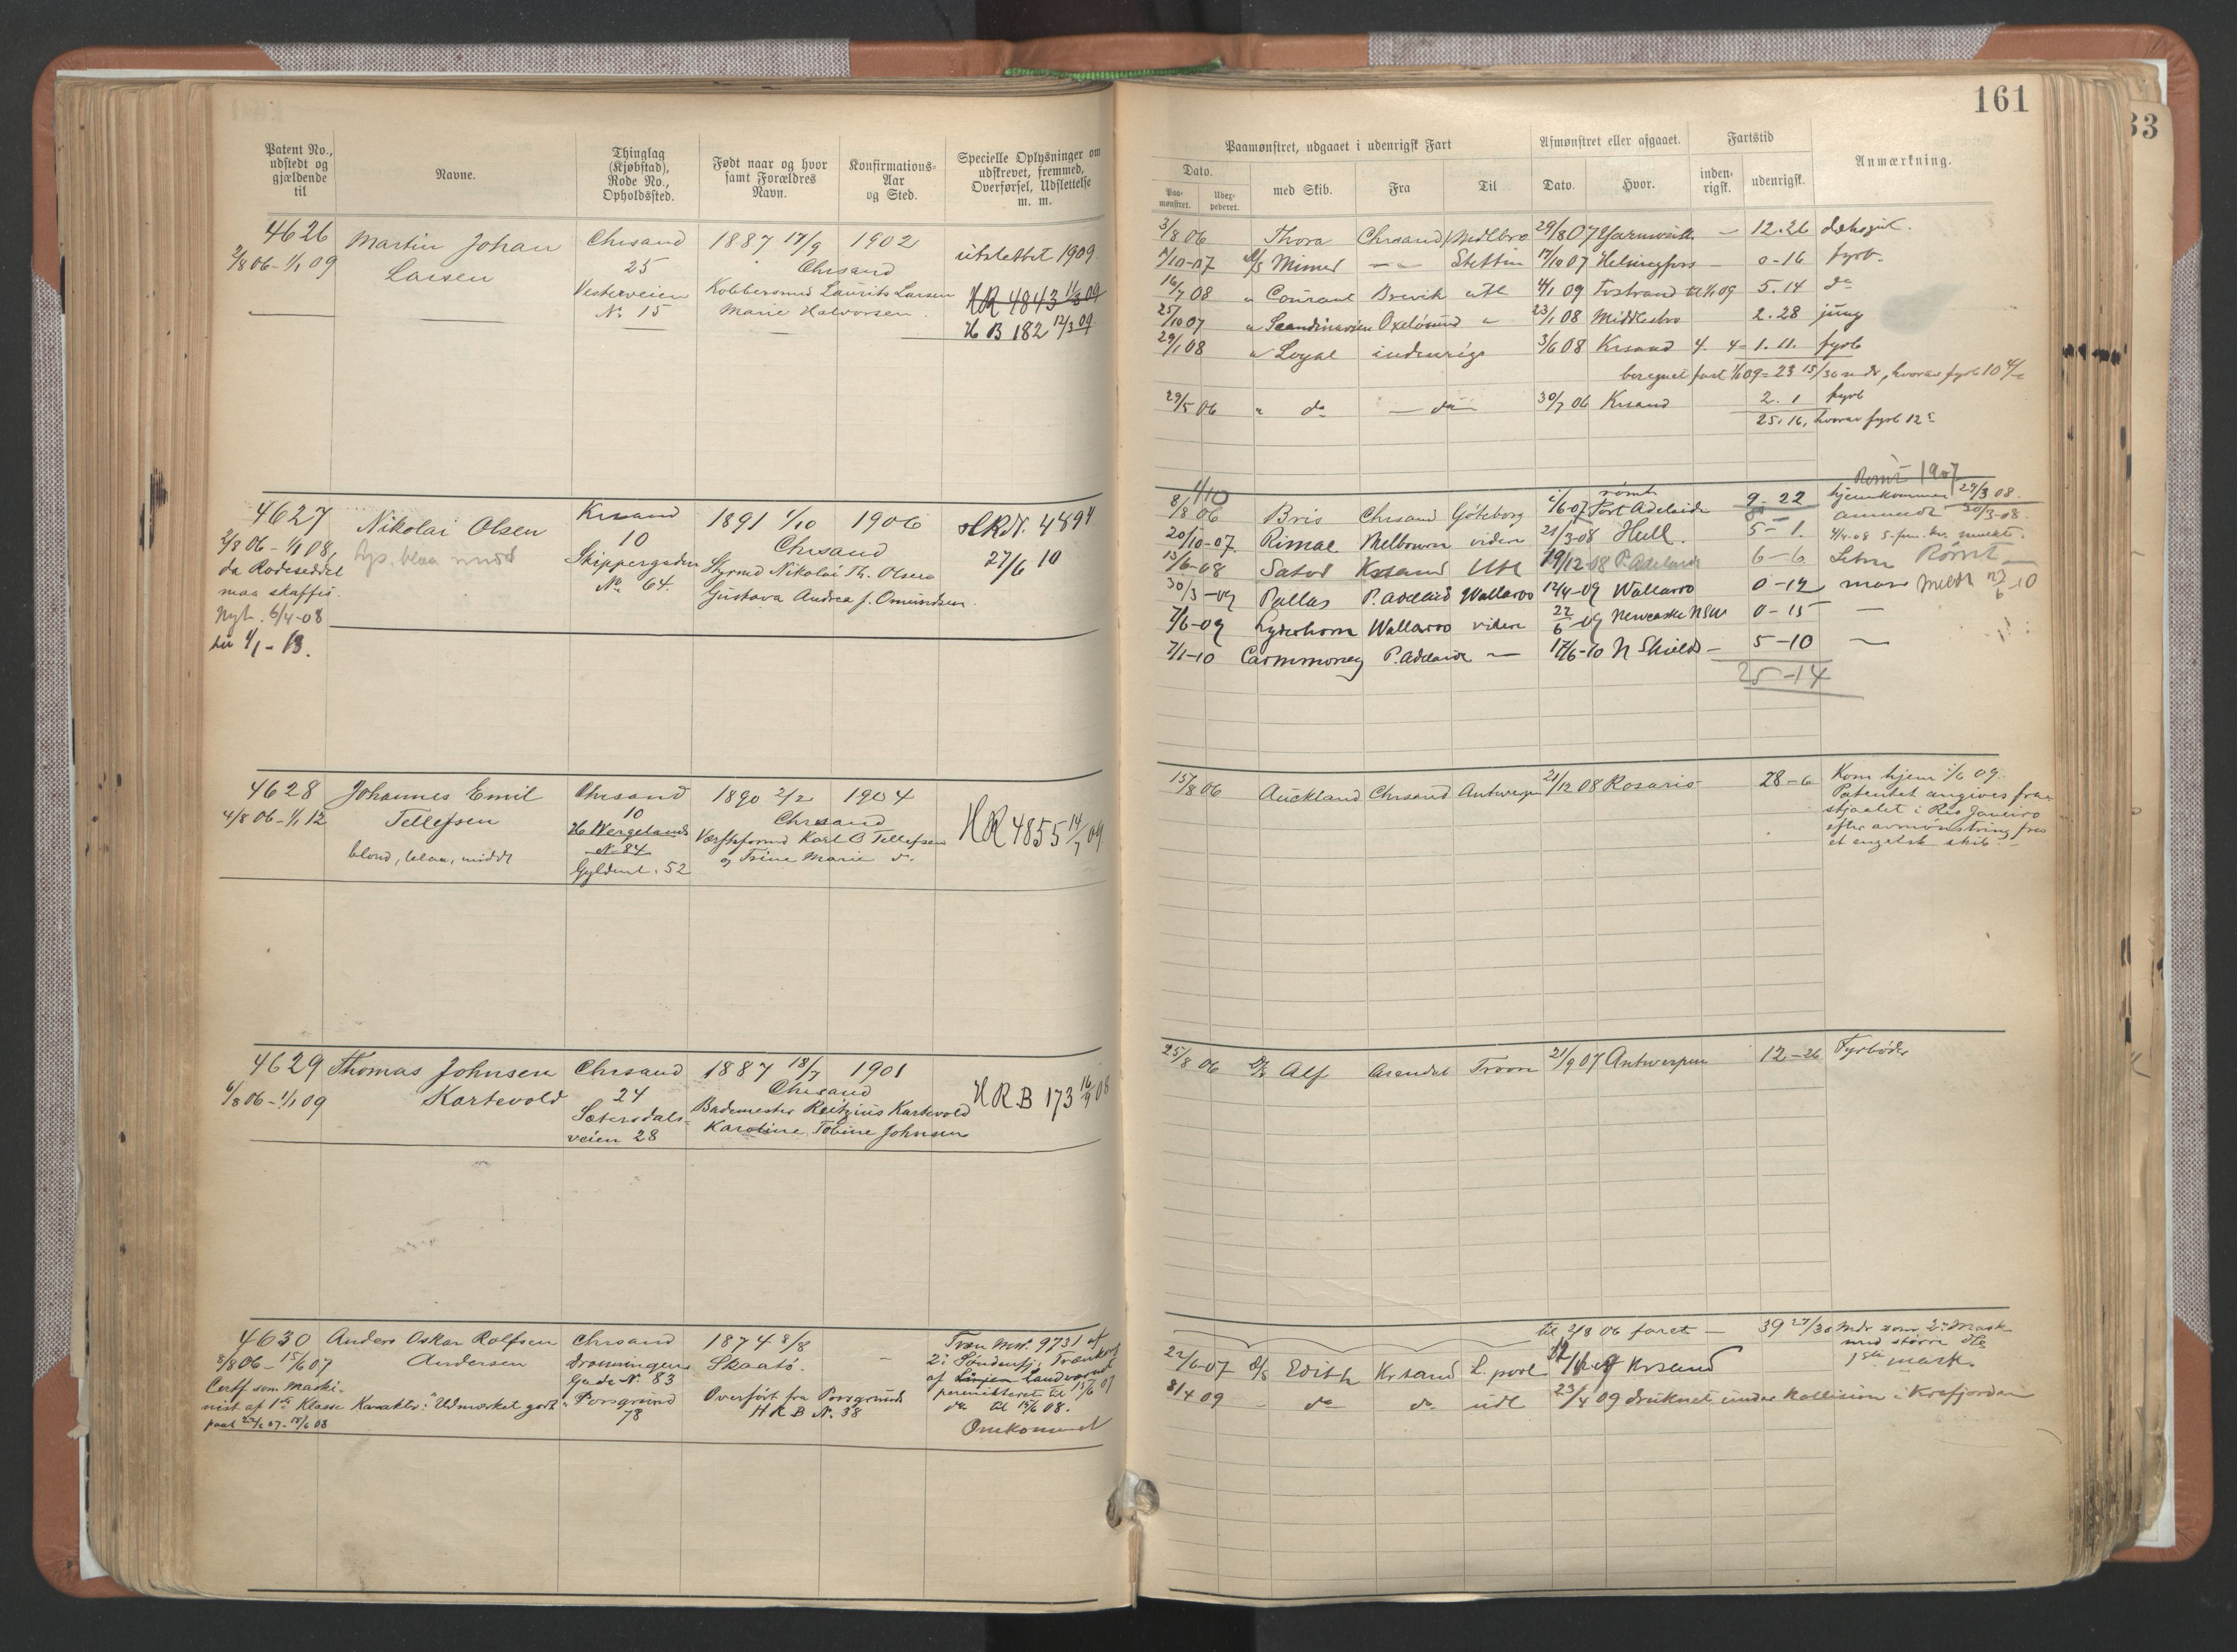 161
33
Patent No., udstedt og gjældende til
Navne.
Thinglag (Kjøbstad), Rode No., Opholdssted.
Født naar og hvor samt Forældres Navn.
Konfirmations-Aar og Sted.
Specielle Oplysninger om udskrevet, fremmed, Overførsel, Udslettelse m. m.
Paamønstret, udgaaet i udenrigsk Fart
Dato.
Paa-mønstret.
Udex-pederet.
med Skib.
Fra
Til
Afmønstret eller afgaaet.
Dato.
Hvor.
Fartstid
inden-rigsk.
udenrigsk.
Anmærkning.
4626
2/8 06 - 1/1 09
Martin Johan
Larsen
Chrsand
25
Vesterveien
No 15
1887 17/9
1902
Chrsand
Kobbersmed Laurits Larsen
Marie Halvorsen.
utslettet 1909.
HR 4843 11/3 09
HB 182 12/3 09
3/8 06 Thora Chrsand Mdlbro 29/8 07 Yarmouth - 12.26
7/10-07 D/S Mimer - Stettin 17/10 07 Helsingfors - 0-16 fyrb.
16/7 08 " Courant Brevik utl 4/1 09 Tvstrand 5.14 do
25/10 07 " Scandinavien Oxelösund " 23/1 08 Middlesbro 2.28 jung
29/1 08 " Loyal indenrigs 3/6 08 Krsand 4. 4 - 1.11. fyrb
beregnet fart 1/1 09 = 23 15/30 mdr, hvorav fyrb 10
29/5 06 " do - do 30/7 06 Krsand 2. 1 fyrb
25.16, hvorav fyrb 12
4627
2/8 06 - 1/1 08,
da Rodeseddel
maa skaffes.
Nyt. 6/4-08
til 1/1-13.
Nikolai Olsen
lys. blaa midd
Krsand
10
Skippergaden
No 64.
1891 1/10
1906
Chrsand
Styrmd Nikolai Th. Olsen
Gustava Andrea f. Omundsen.
HR.N. 4894
27/6 10
Rømt 1907
8/8 06 Bris Chrsand Göteborg 07 rømt Port Adelaide 9-22 hjemkommen 29/3 08.
20/10-07. Rimac Melbourn videre 21/3-08 Hull. 5-1. 4/4-08 5. mulkt.
13/6-08 Sator Krsand Utl 19/12-08 P. Adelaide 6-6 Rømt
30/3-09 Pallas P. Adelaid Wallaroo 12/4-09 Wallaroo 0-12
7/6-09 Lyderhorn Wallaroo videre 22/6-09 Newcastle NSW 0-15 -
7/1-10 Carnmoney P. Adelaide - 17/6-10 N Shields - 5-10 -
25-14
4628
4/8 06 - 1/1 12
Johannes Emil
Tellefsen
blond, blaa, midd
Chrsand
10
H Wergelands
No 84
Gyldenl. 52
1890 2/2
1904
Chrsand
Værftsformd Karl O Tellefsen
og Trine Marie do.
HR 4855 14/7 09
15/8 06 Auckland Chrsand Antwerpen 21/12 08 Rosario 28-6
Kom hjem 1/6 09.
Patentet angives fra-
stjaalet i Rio Janeiro
efter avmønstring fra
et engelsk skib -
4629
6/8 06 - 1/1 09
Thomas Johnsen
Kartevold
Chrsand
24
Sætersdals-
veien 28
1887 18/7
1901
Chrsand
Bademester Reitzius Kartevold
Karoline Tobine Johnsen
HRB 173 16/9 08
25/8 06 D/S Alf Arendal Troon 21/9 07 Antwerpen 12-26 Fyrbøder
4630
8/8 06 - 15/6 07
Anders Oskar Rolfsen
Andersen
Certf som Maski-
nist af 1ste Klasse Karakter: "Udmærket godt"
Chrsand
Dronningens
Gade No. 83
Porsgrund
78
1874 8/8
Skaatö.
-
Overført fra Porsgrund
HRB No. 38
Træn Mnr. 9731 af
2: Söndenfj. Trænkorps
af Linjen Landværnet
permitteret til 15/6 07
do til 15/6 08.
Omkommet
til 2/8 06 faret - 39 27/30 mdr som 2n Mask
med större
1ste mask.
22/6-07 D/S Edith Krsand L. pool Krsand
8/4 09 - do do utl 23/4 09 druknet under Kollision i Krafjorden